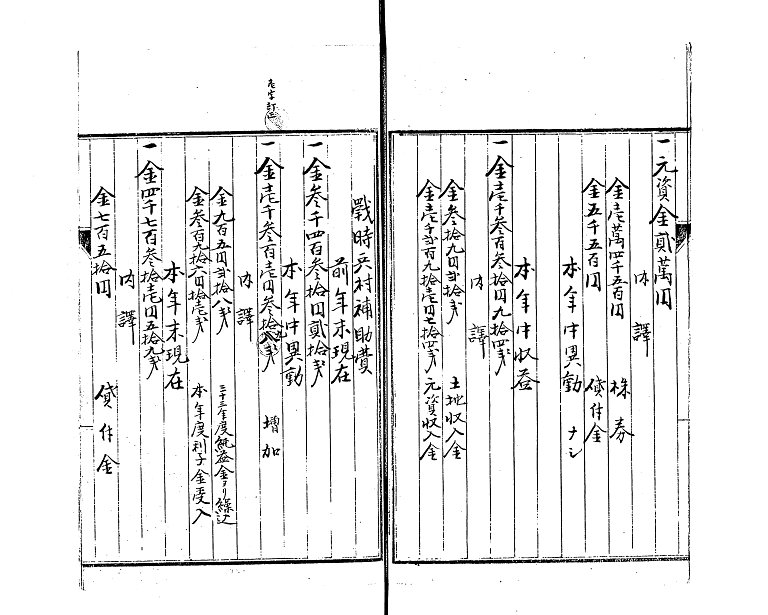 一元資金貳萬円
内譯
金壱萬四千五百円 株券
金五千五百円 貸付金
本年中異動 ナシ
本年中收益
一金壱千参百参拾円九拾四銭
内譯
金参拾九円弐拾銭 土地収入金
金壱千弐百九拾壱円七拾四銭 元資収入金
戰時兵村補助費
前年末現在
一金参千四百参拾円貳拾銭
本年中異動
一金壱千参百壱円参拾九銭 増加
内譯
金九百五円弐拾八銭 三十三年度純益金ヨリ繰込
金参百九拾六円拾壱銭 本年度利子金受入
本年末現在
一金四千七百参拾壱円五拾九銭
内譯
金七百五拾円 貸付金